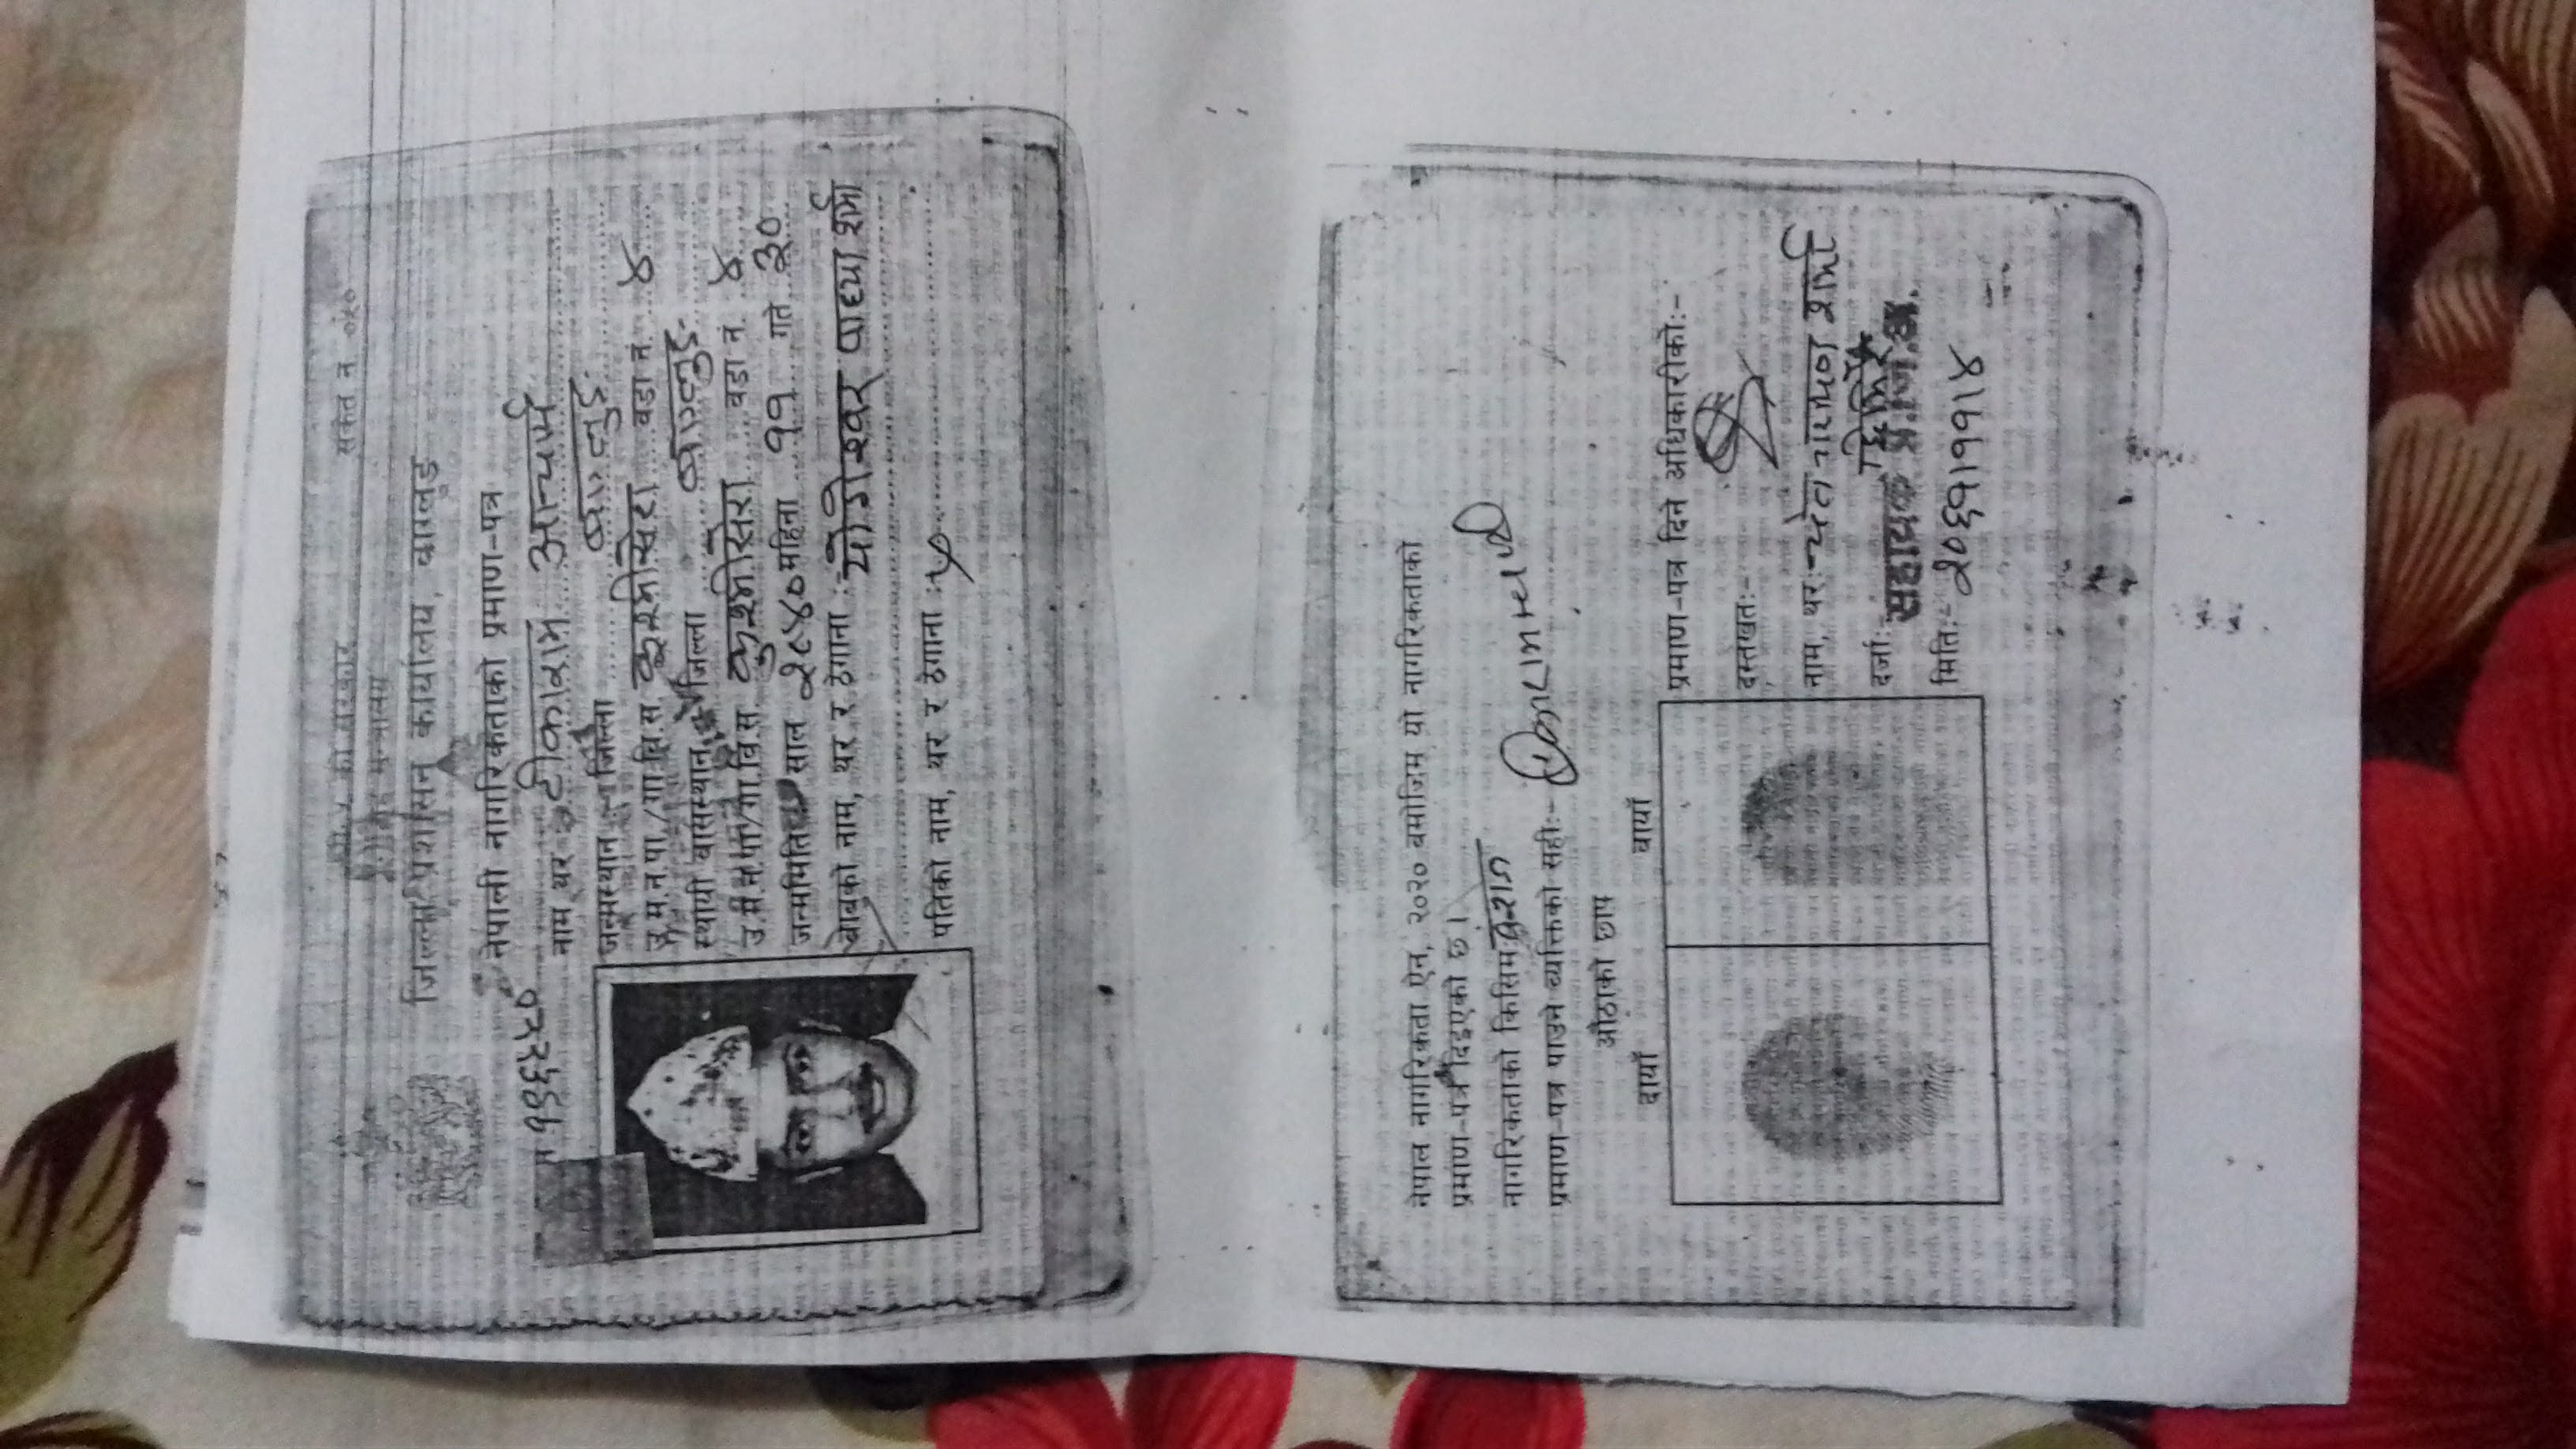 संकेत नं ०५०
श्री ५ को सरकार
गृह मन्त्रालय
जिल्ला प्रशासन कार्यालय, बाग्लुङ
नेपाली नागरिकताको प्रमाण-पत्र
नाम थर टीकाराम आचार्य
जन्मस्थान :- जिल्ला बाग्लुङ
उ.म.न.पा./गा.वि.स. कुश्मीसेरा वडा नं. ४
स्थायी बासस्थान :- जिल्ला बाग्लुङ
उ.म.न.पा./गा.वि.स. कुश्मीसेरा वडा नं. ४
जन्ममिति साल २०४० महिना ११ गते ३०
बाबुको नाम, थर र ठेगाना :- योगेश्वर पाध्या शर्मा
पतिको नाम, थर र ठेगाना :-
नेपाल नागरिकता ऐन, २०२० बमोजिम यो नागरिकताको
प्रमाण-पत्र दिइएको छ ।
नागरिकताको किसिम वंशज
प्रमाण-पत्र पाउने व्यक्तिको सही:-
औंठाको छाप
दायाँ बायाँ
प्रमाण-पत्र दिने अधिकारीको:-
दस्तखत:-
नाम, थर:- चेत नारायण शर्मा
दर्जा:- सहायक प्र.जि.अ.
मिति:- २०६१।११।४